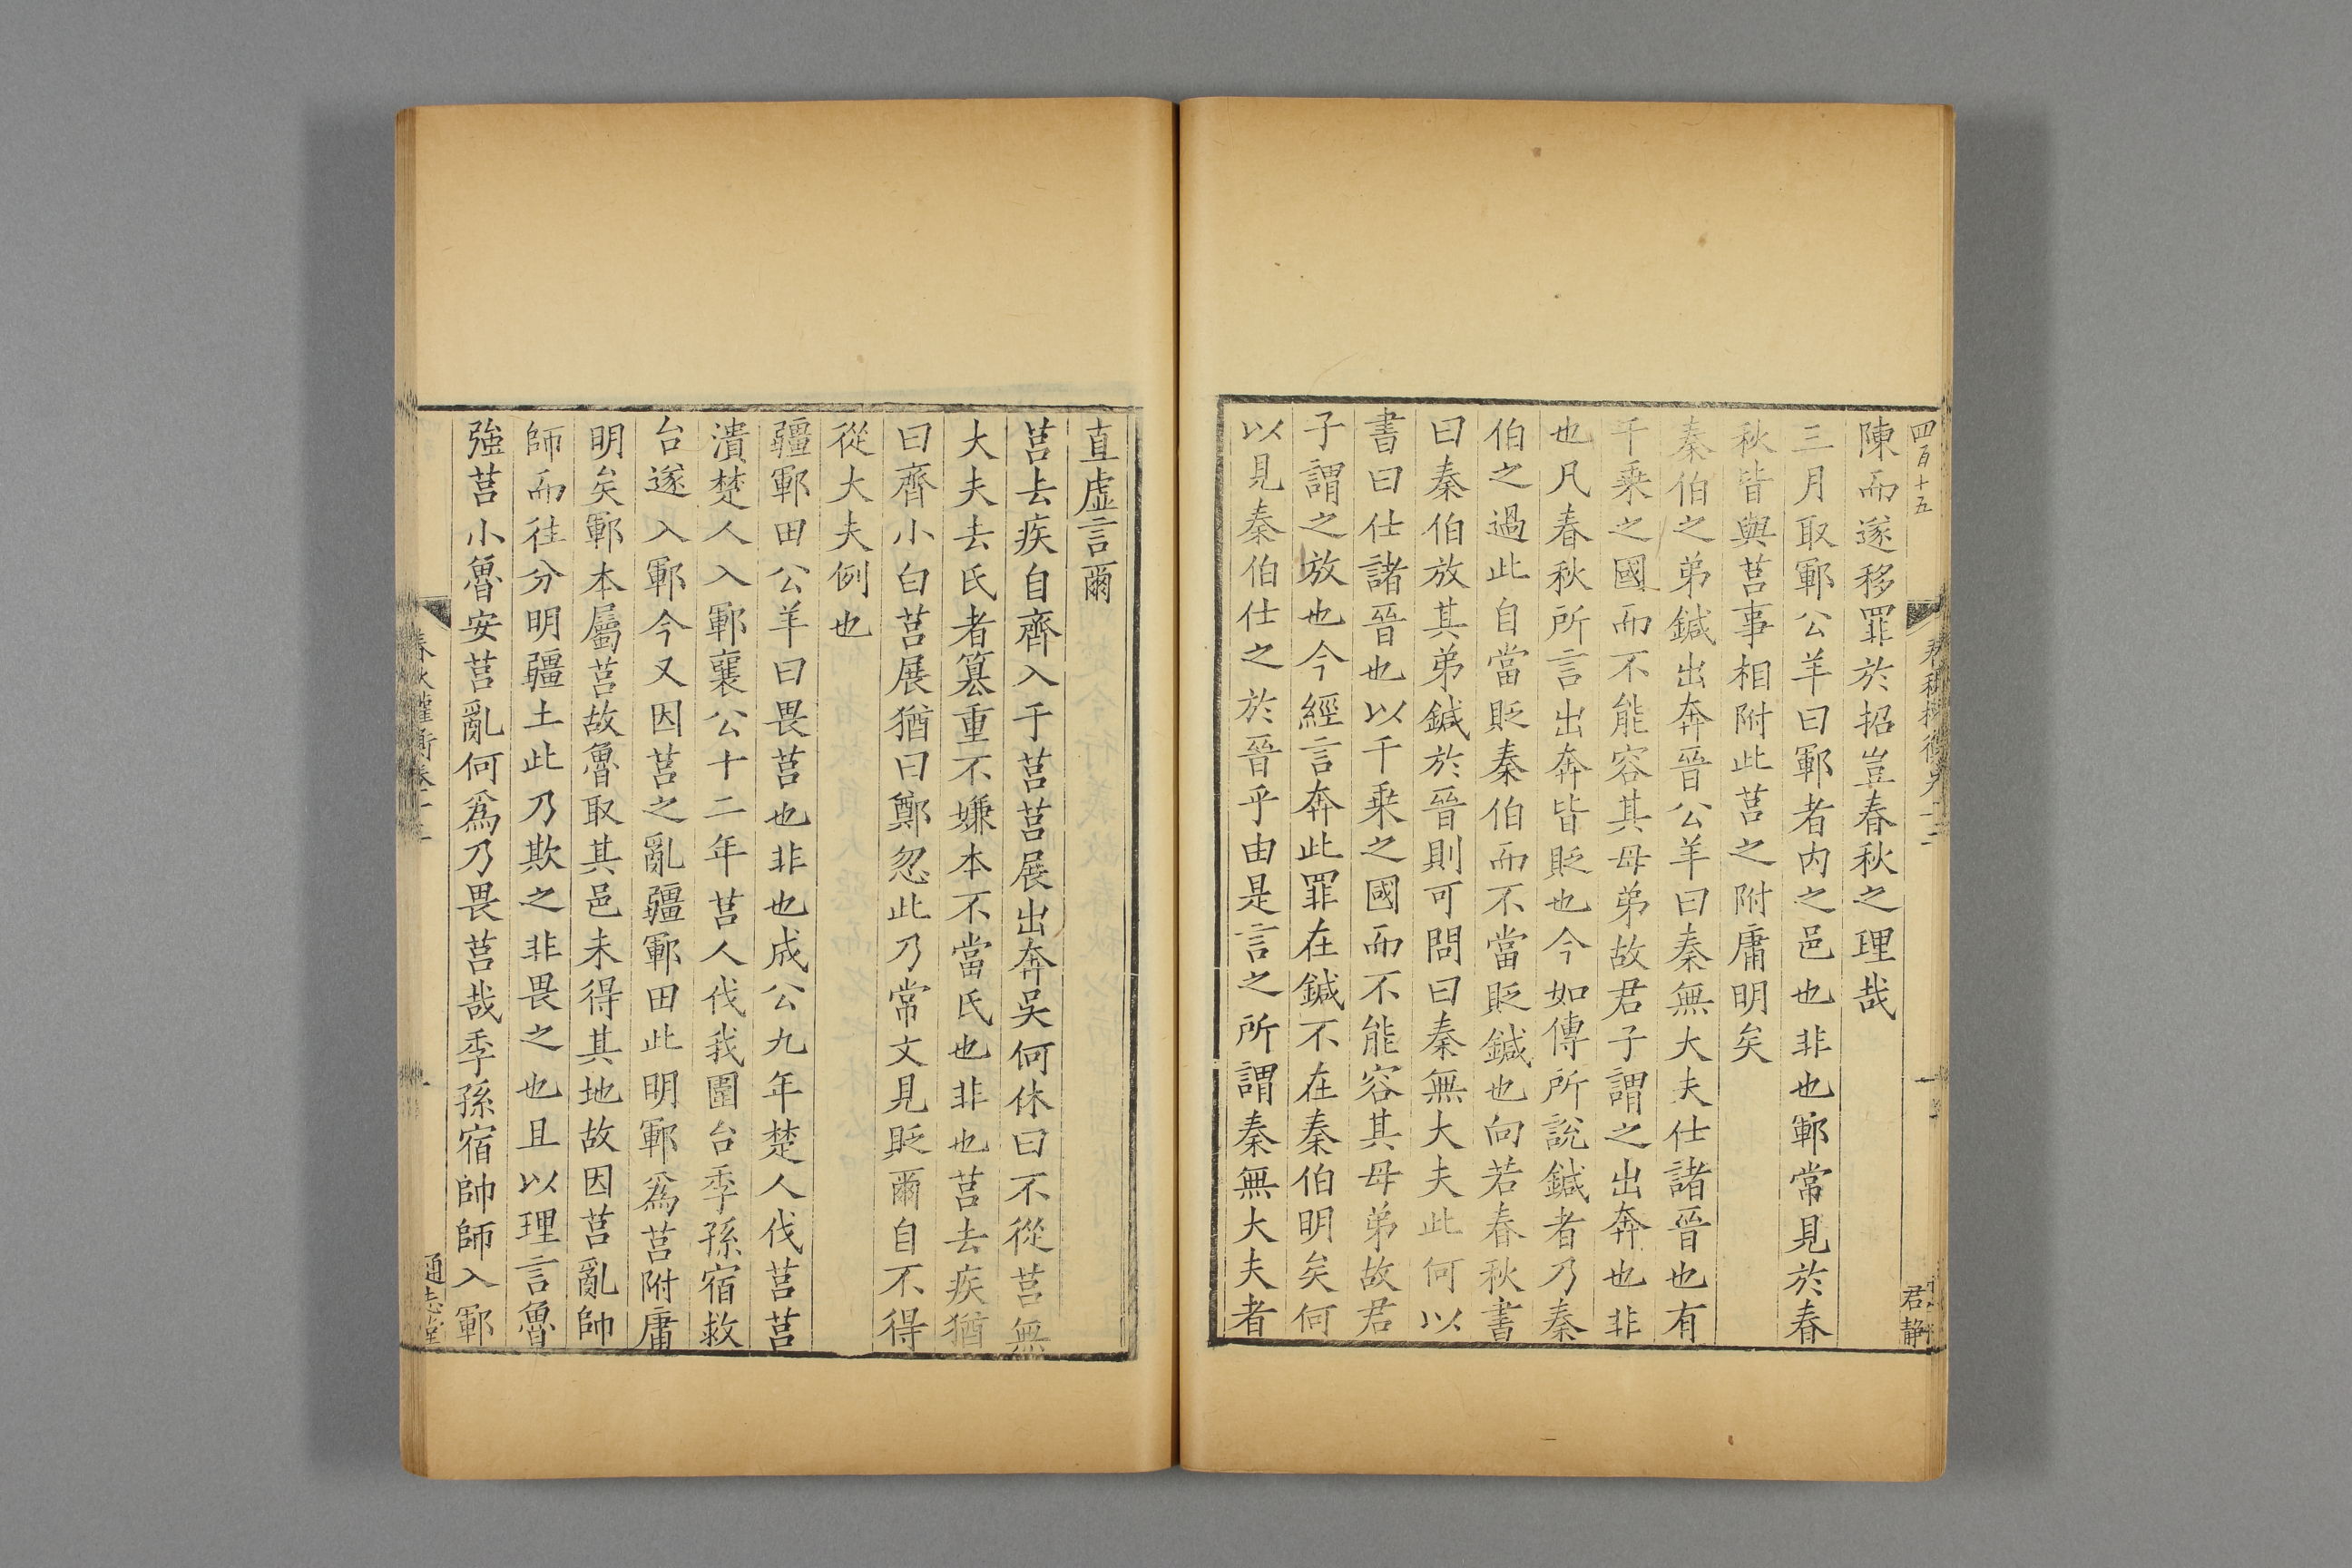 四百十五
陳而遂移罪於招豈春秋之理哉
三月取鄆公羊曰鄆者内之邑也非也鄆常見於春
秋皆與莒事相附此莒之附庸明矣
秦伯之弟鍼出奔晉公羊曰秦無大夫仕諸晉也有
千乗之國而不能容其母弟故君子謂之出奔也非
也凡春秋所言出奔皆貶也今如傳所說鍼者乃秦
伯之過此自當貶秦伯而不當貶鍼也向若春秋書
曰秦伯放其弟鍼於晉則可問曰秦無大夫此何以
書曰仕諸晉也以千乗之國而不能容其母弟故君
子謂之放也今經言奔此罪在鍼不在秦伯明矣何
以見秦伯仕之於晉乎由是言之所謂秦無大夫者
君静
直虛言爾
莒去疾自齊入于莒莒展出奔吳何休曰不從莒無
大夫去氏者簒重不嫌本不當氏也非也莒去疾猶
曰齊小白莒展猶曰鄭忽此乃常文見貶爾自不得
從大夫例也
疆鄆田公羊曰畏莒也非也成公九年楚人伐莒莒
潰楚人入鄆襄公十二年莒人伐我圍台季孫宿救
台遂入鄆今又因莒之亂疆鄆田此明鄆爲莒附庸
明矣鄆本屬莒故魯取其邑未得其地故因莒亂帥
師而往分明疆土此乃欺之非畏之也且以理言魯
強莒小魯安莒亂何爲乃畏莒哉季孫宿帥師入鄆
春秋權衡卷十三
通志堂